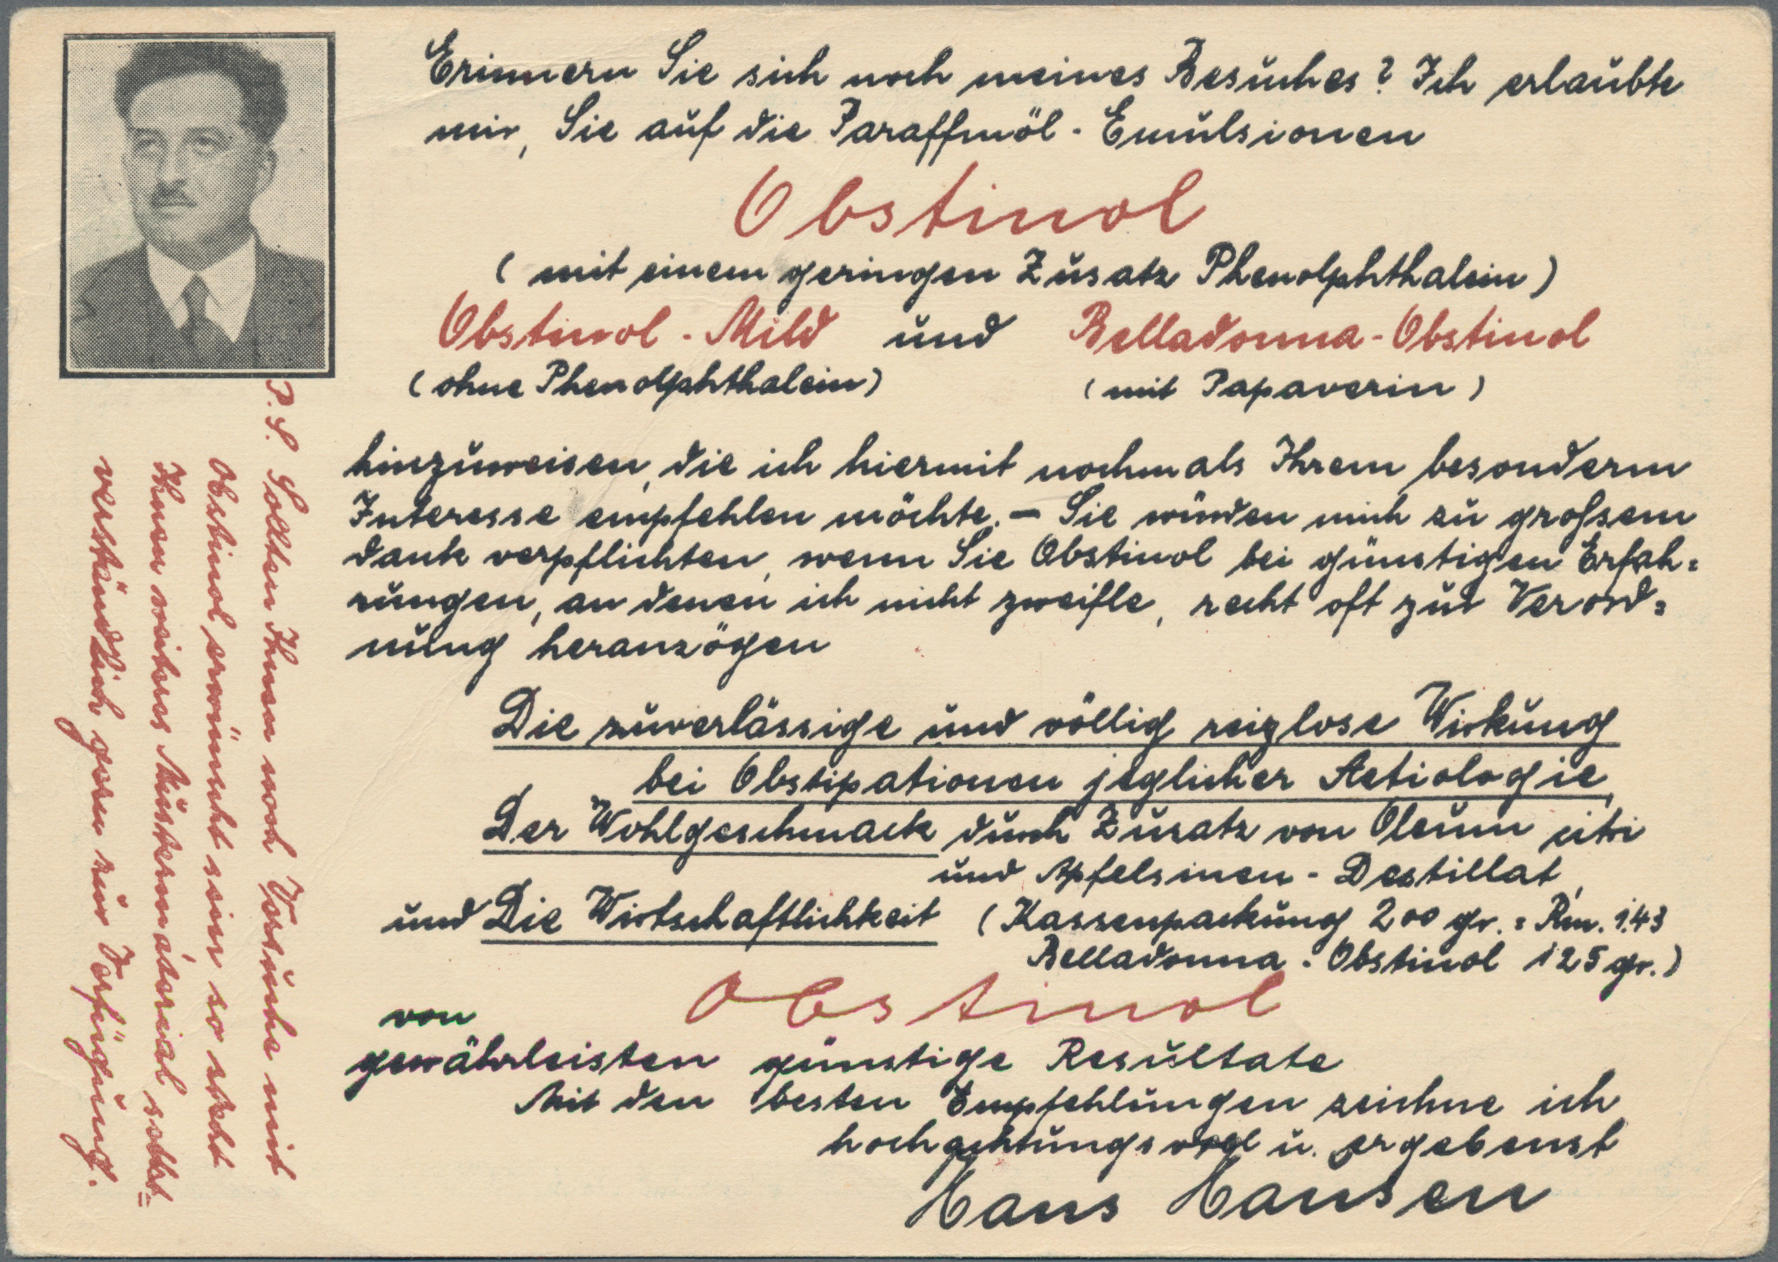 Erinnern Sie sich noch meines Besuches? Ich erlaubte
mir, Sie auf die Paraffinöl-Emulsionen
Obstinol
(mit einem geringen Zusatz Phenolphthalein)
Obstinol-Mild und Belladonna-Obstinol
(ohne Phenolphthalein) (mit Papaverin)
hinzuweisen, die ich hiermit nochmals Ihrem besonderm
Interesse empfehlen möchte. – Sie würden mich zu großem
Dank verpflichten, wenn Sie Obstinol bei günstigen Erfah=
rungen, an denen ich nicht zweifle, recht oft zur Verord=
nung heranzögen
Die zuverlässige und völlig reizlose Wirkung
bei Obstipationen jeglicher Aetiologie,
Der Wohlgeschmack durch Zusatz von Oleum citri
und Apfelsinen-Destillat,
und Die Wirtschaftlichkeit (Kassenpackung 200 gr. = Rm. 1.43
Belladonna-Obstinol 125 gr.)
von Obstinol
gewährleisten günstige Resultate
Mit den besten Empfehlungen zeichne ich
hochachtungsvoll u. ergebenst
Hans Hansen
P.S. Sollten Ihnen noch Versuche mit
Obstinol erwünscht sein so steht
Ihnen weiteres Mustermaterial selbst=
verständlich gern zur Verfügung.